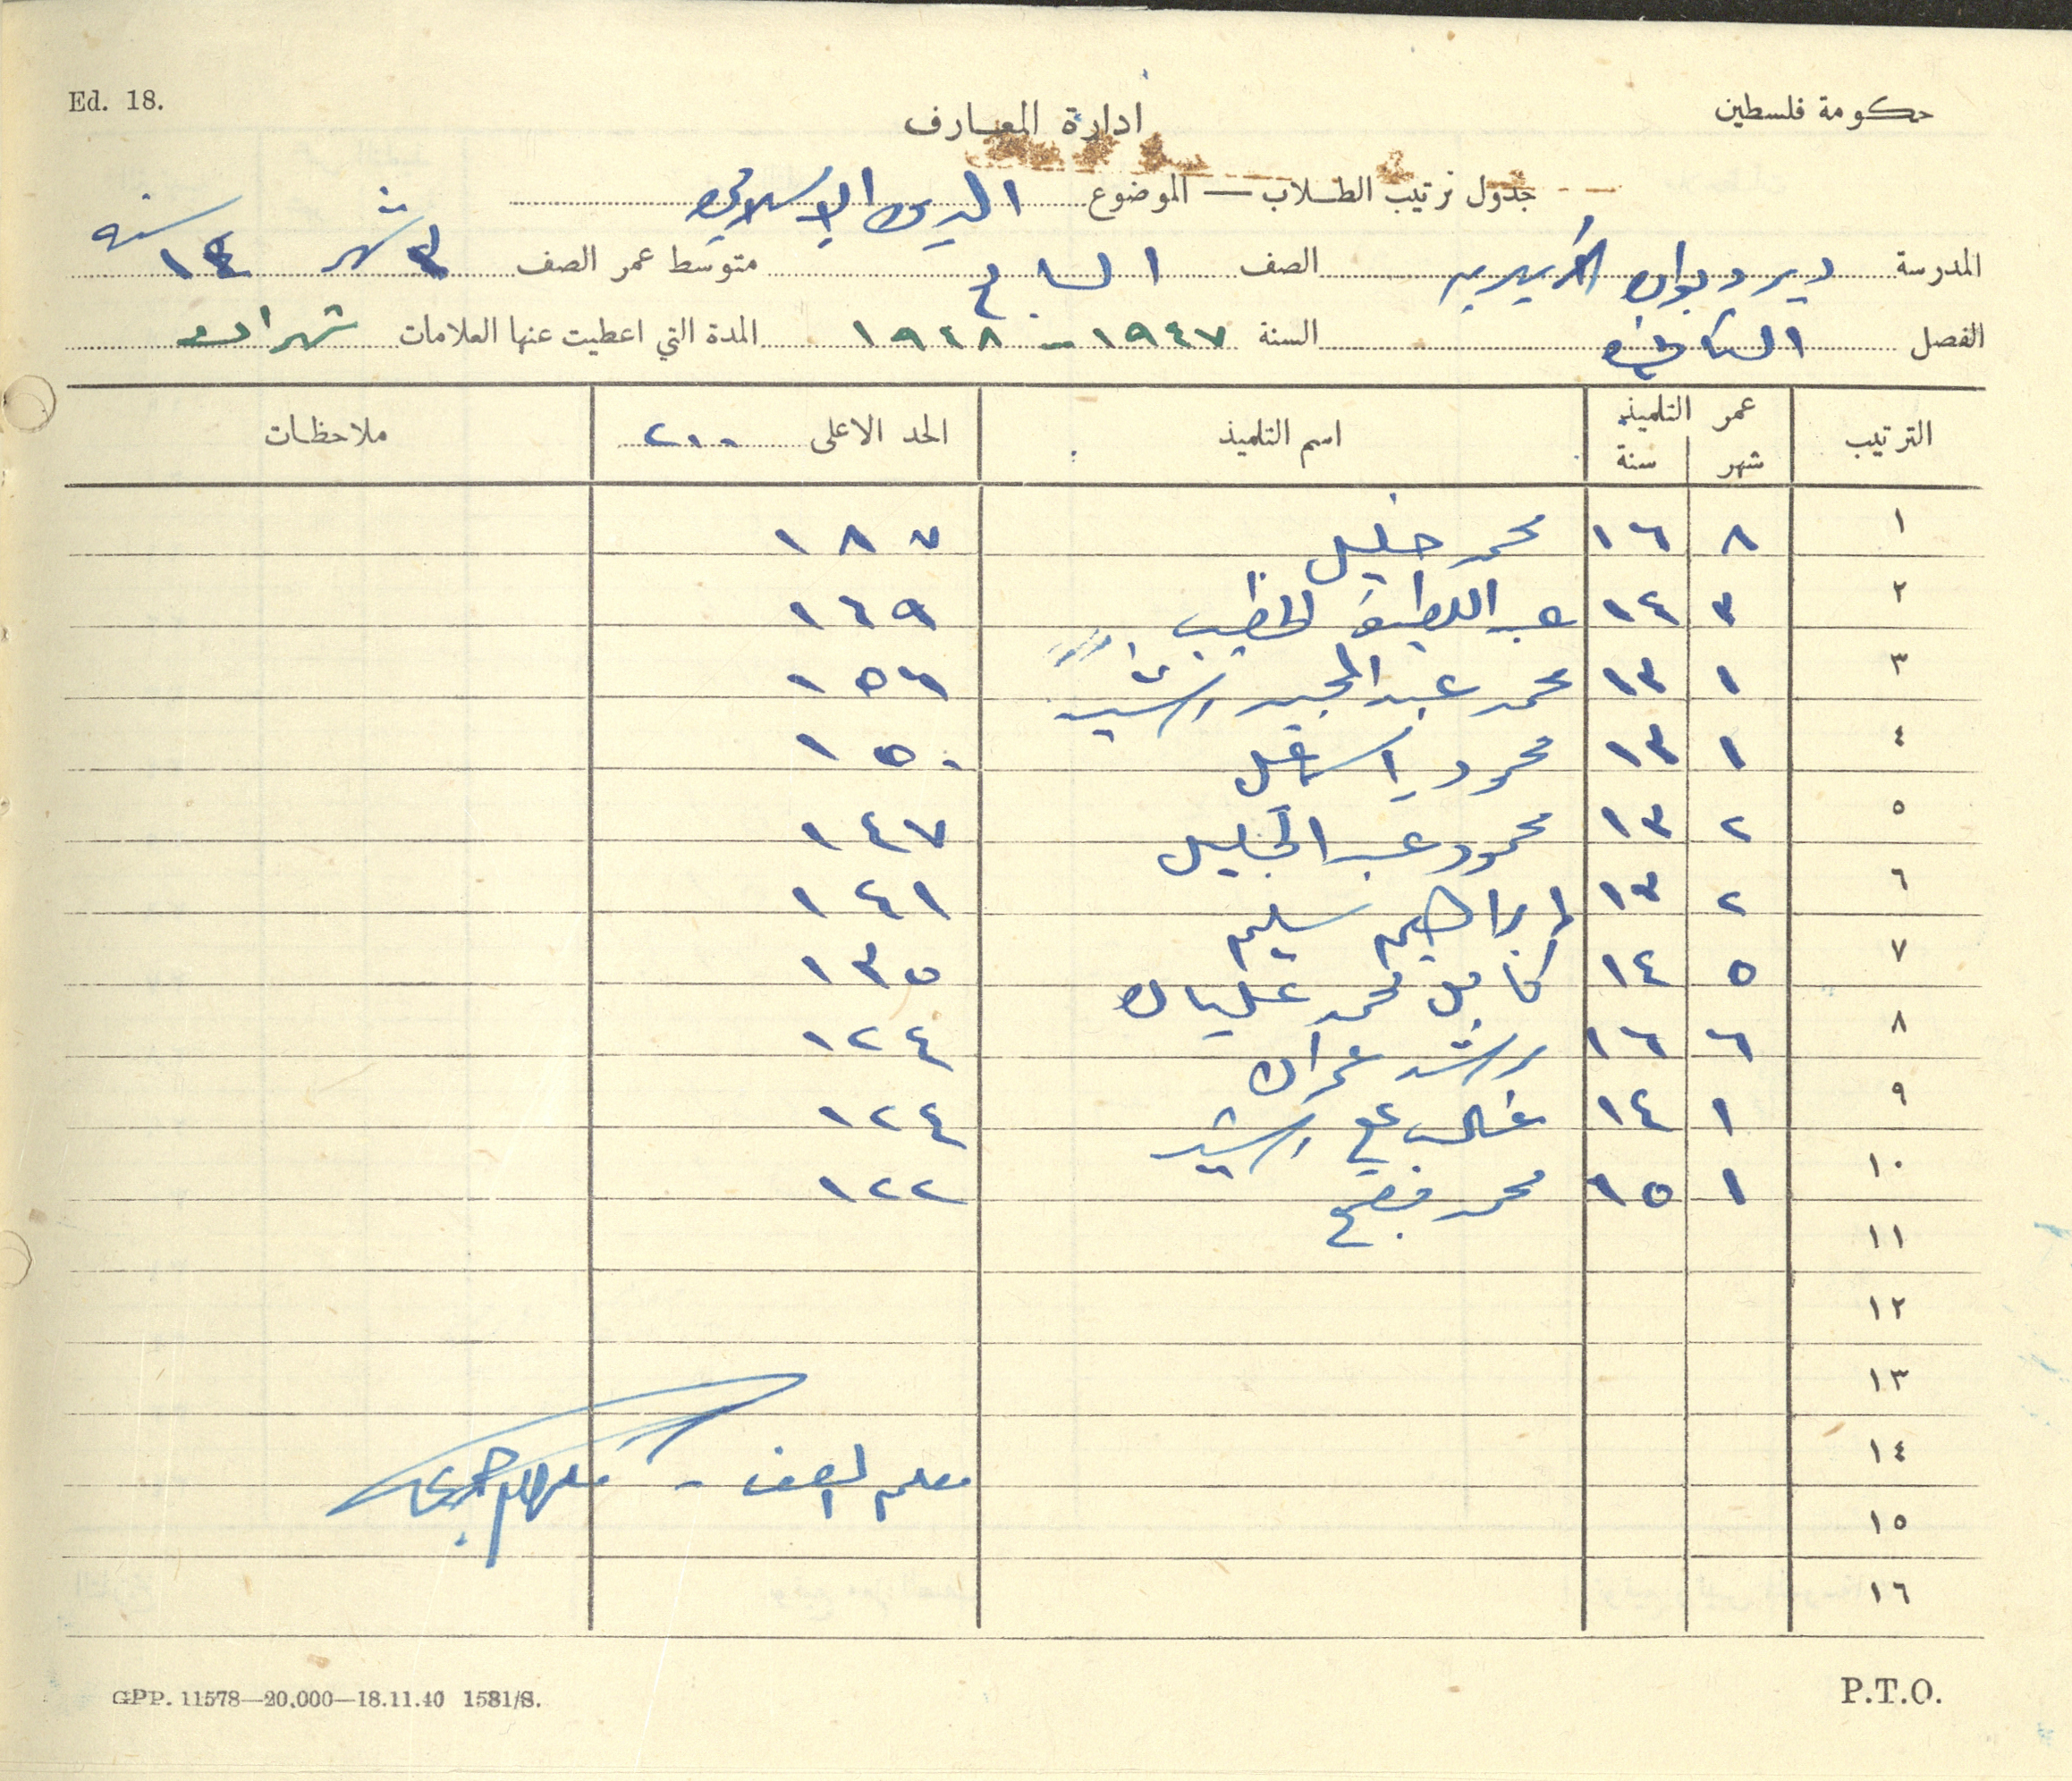 Ed. 18.
حكومة فلسطين
ادارة المعارف
جدول ترتيب الطلاب — الموضوع الدين الإسلامي
المدرسة دير دبوان الأميرية الصف السابع متوسط عمر الصف ٣ شهر ١٤ سنه
الفصل الثاني السنة ١٩٤٧ - ١٩٤٨ المدة التي اعطيت عنها العلامات شهران
الترتيب عمر التلميذ شهر سنة اسم التلميذ الحد الاعلى ٢٠٠ ملاحظات
١ ٨ ١٦ محمد خليل ١٨٧
٢ ٣ ١٤ عبد اللطيف الخطيب ١٦٩
٣ ١ ١٣ محمد عبد المجيد رشيد ١٥٦
٤ ١ ١٣ محمود إسماعيل ١٥٠
٥ ٢ ١٣ محمود عبد الجليل ١٤٧
٦ ٢ ١٣ إبراهيم سليم ١٤١
٧ ٥ ١٤ كامل محمد عليان ١٣٥
٨ ٦ ١٦ رشد عمران ١٢٤
٩ ١ ١٤ غالب علي رشيد ١٢٤
١٠ ١ ١٥ محمد ١٢٢
١١
١٢
١٣
١٤
معلم الصف -
١٥
١٦
GPP. 11578—20,000—18.11.40 1581/S.
P.T.O.